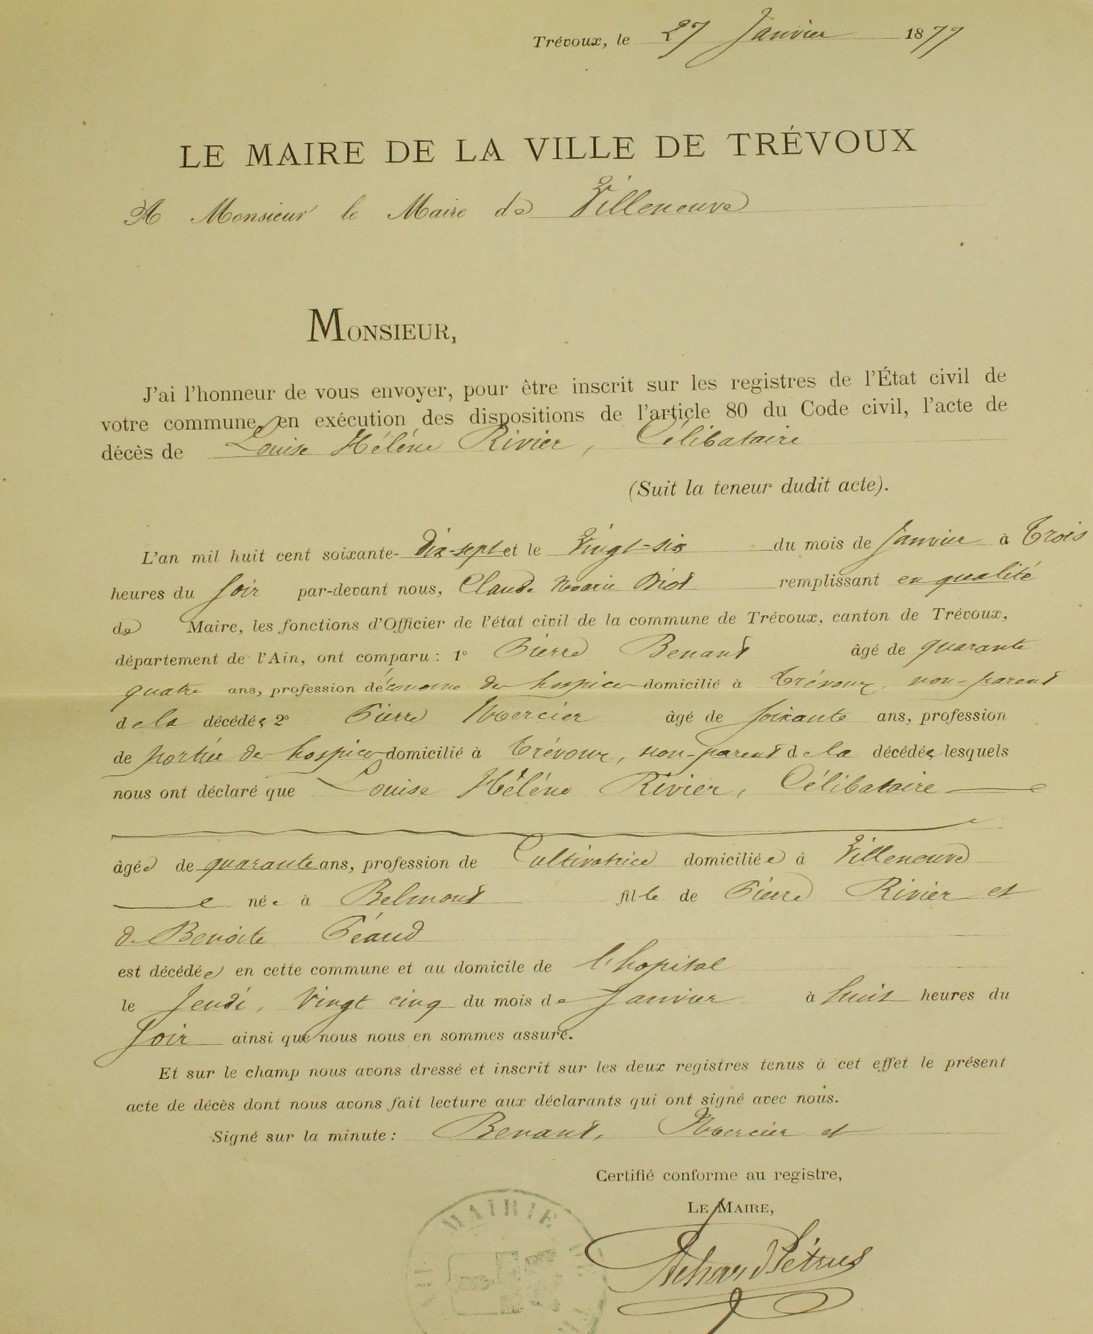 Trévoux, le 27 Janvier 1877
LE MAIRE DE LA VILLE DE TRÉVOUX
A Monsieur le Maire de Villeneuve
MONSIEUR,
J'ai l'honneur de vous envoyer, pour être inscrit sur les registres de l'État civil de
votre commune, en exécution des dispositions de l'article 80 du Code civil, l'acte de
décès de Louise Hélène Rivier, Célibataire
(Suit la teneur dudit acte).
L'an mil huit cent soixante-Dix-sept et le Vingt-six du mois de Janvier à Trois
heures du Soir par-devant nous, Claude Marie remplissant en qualité
de Maire, les fonctions d'Officier de l'état civil de la commune de Trévoux, canton de Trévoux,
département de l'Ain, ont comparu : 1° Pierre Benaud âgé de quarante
quatre ans, profession d'économe de hospice domicilié à Trévoux, non-parent
de la décédée 2° Pierre Mercier âgé de soixante ans, profession
de portier de hospice domicilié à Trévoux, non-parent de la décédée lesquels
nous ont déclaré que Louise Hélène Rivier, Célibataire
âgée de quarante ans, profession de Cultivatrice domiciliée à Villeneuve
née à Belmont fille de Pierre Rivier et
de Benoite Péaud
est décédée en cette commune et au domicile de l'hopital
le Jeudi, Vingt cinq du mois de Janvier à huit heures du
Soir ainsi que nous nous en sommes assuré.
Et sur le champ nous avons dressé et inscrit sur les deux registres tenus à cet effet le présent
acte de décès dont nous avons fait lecture aux déclarants qui ont signé avec nous.
Signé sur la minute : Benaud, Mercier et
Certifié conforme au registre,
LE MAIRE,
MAIRIE